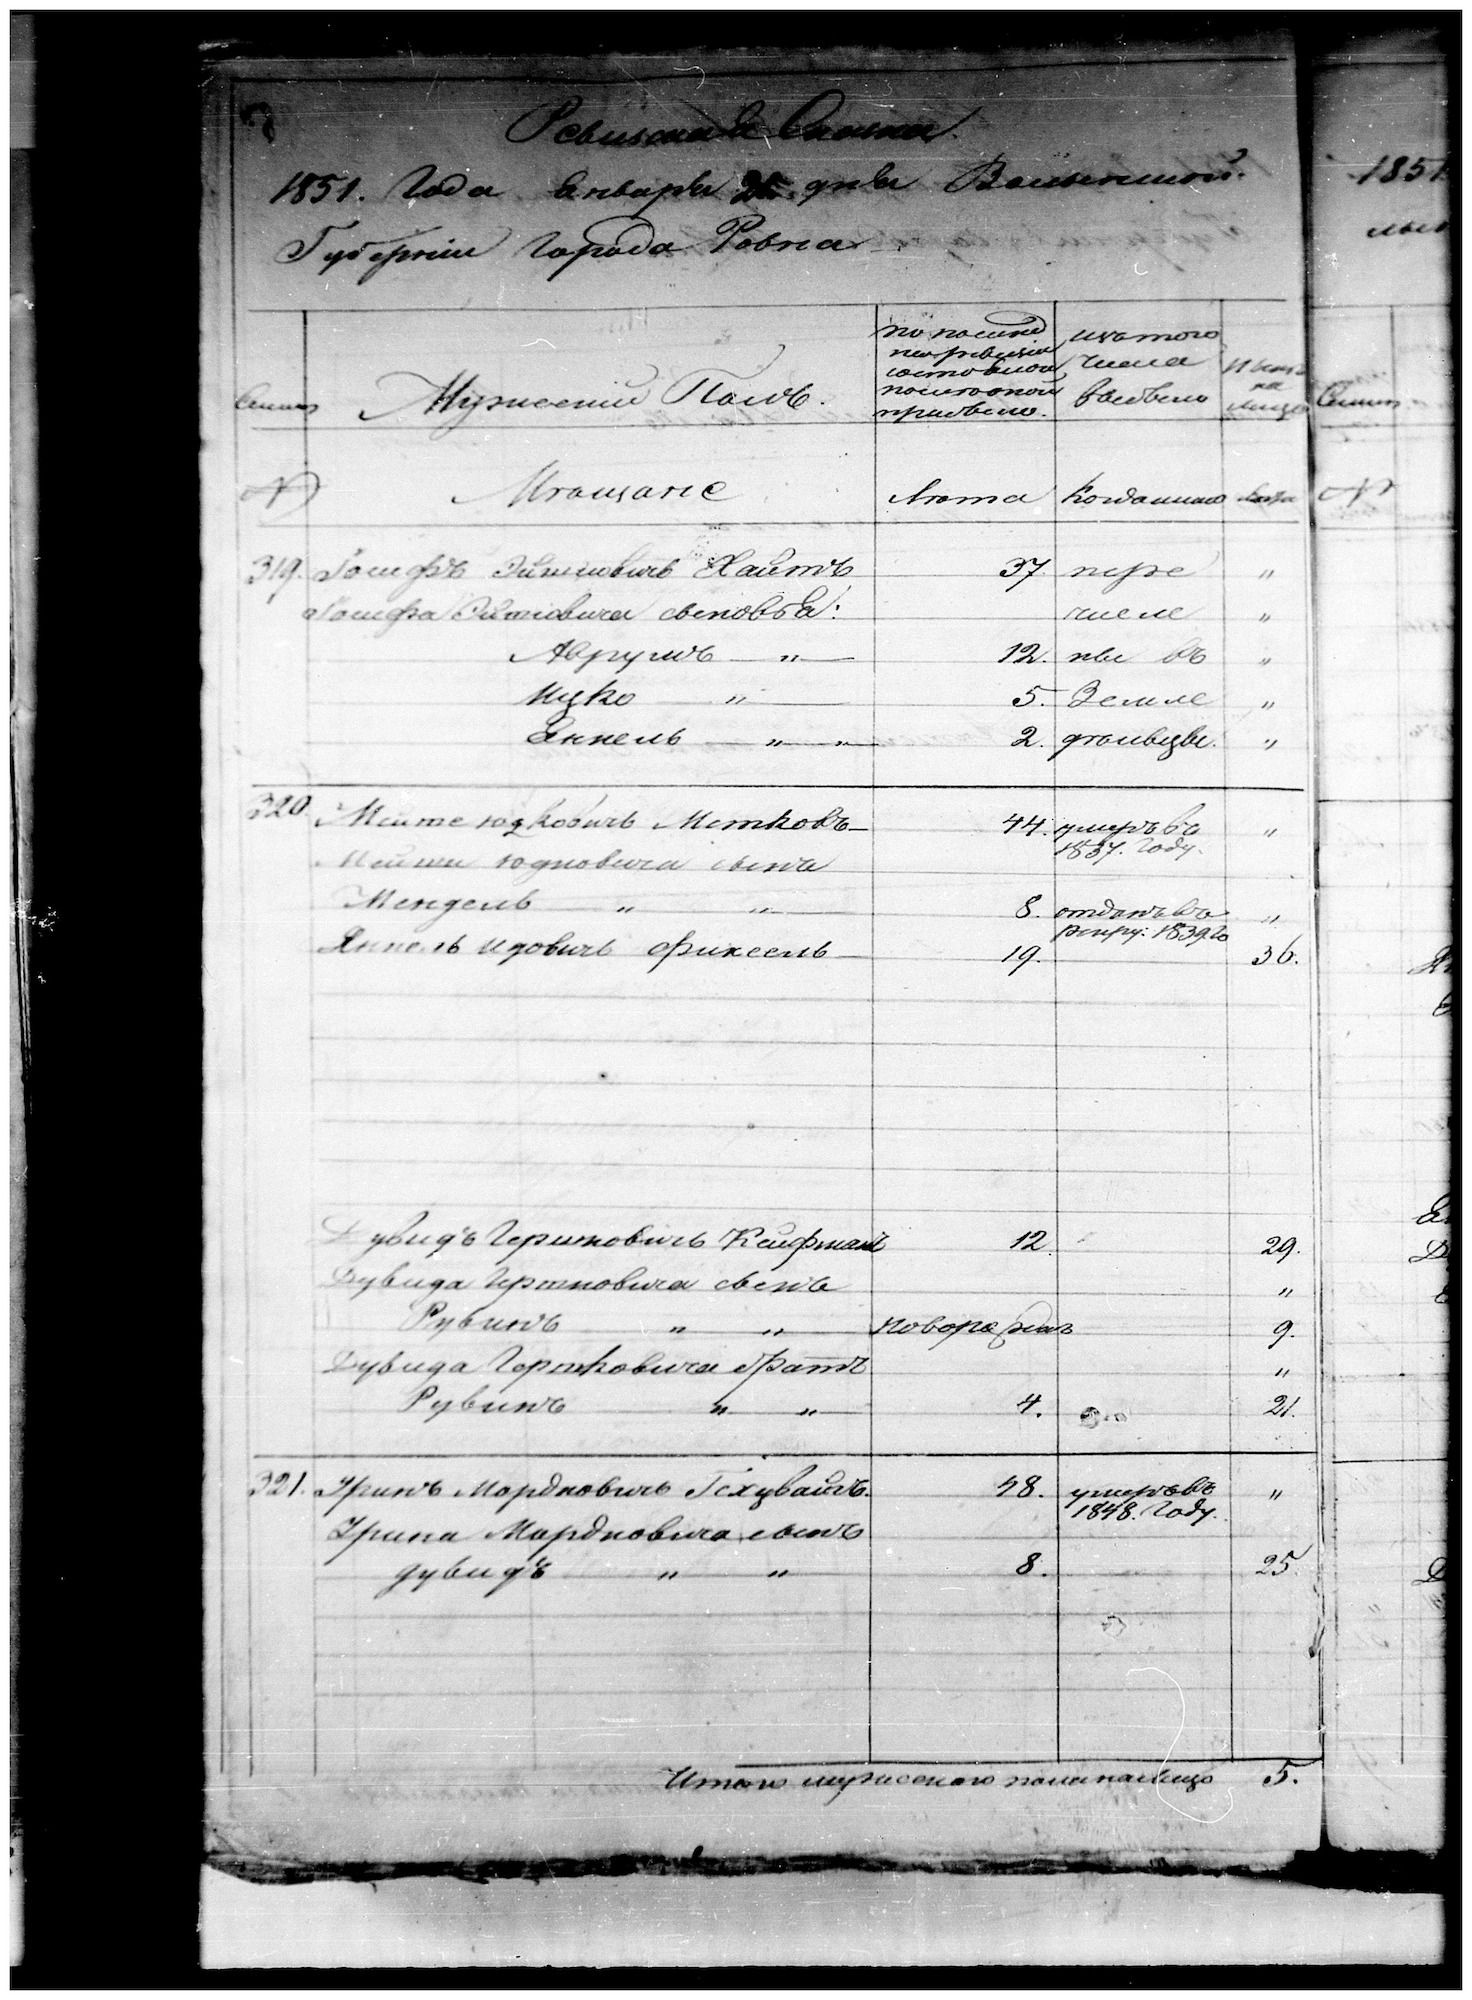 Ревизская Сказка.
1851. Года Января 25 дня Волынской
Губерніи Города Ровна
Семьи
Мужескій Полъ.
по послѣд
ней ревизіи
состояло и
послѣ оной
прибыло.
изъ того
числа
выбыло
Нынѣ
на
лицо
№
Мѣщане
Лѣта
Когда именно
Лѣта
319. Іосифъ Хаитъ 37 пере "
Іосифа сыновья: числе "
Аврумъ " 12. ны въ "
Ицко " 5. Земле "
Янкель " " 2. дѣльцы. "
320. Мейте Юдковичъ Метковъ 44. умеръ въ "
1837. Году.
Мейти Юдковича сынъ
Мендель " " 8. отданъ въ "
рекру: 1839 го
Янкель Идовичъ Фиксель 19. 36.
Дувидъ Гершковичъ Кайфманъ 12. 29.
Дувида Гершковича сынъ "
Рувинъ " " новорожден 9.
Дувида Гершковича братъ "
Рувинъ " " 4. 21.
321. Мордковичъ 48. умеръ въ "
1848. Году.
Мордковича сынъ
Дувидъ " " 8. 25.
Итого мужеского пола налицо 5.
1851
Семьи
№